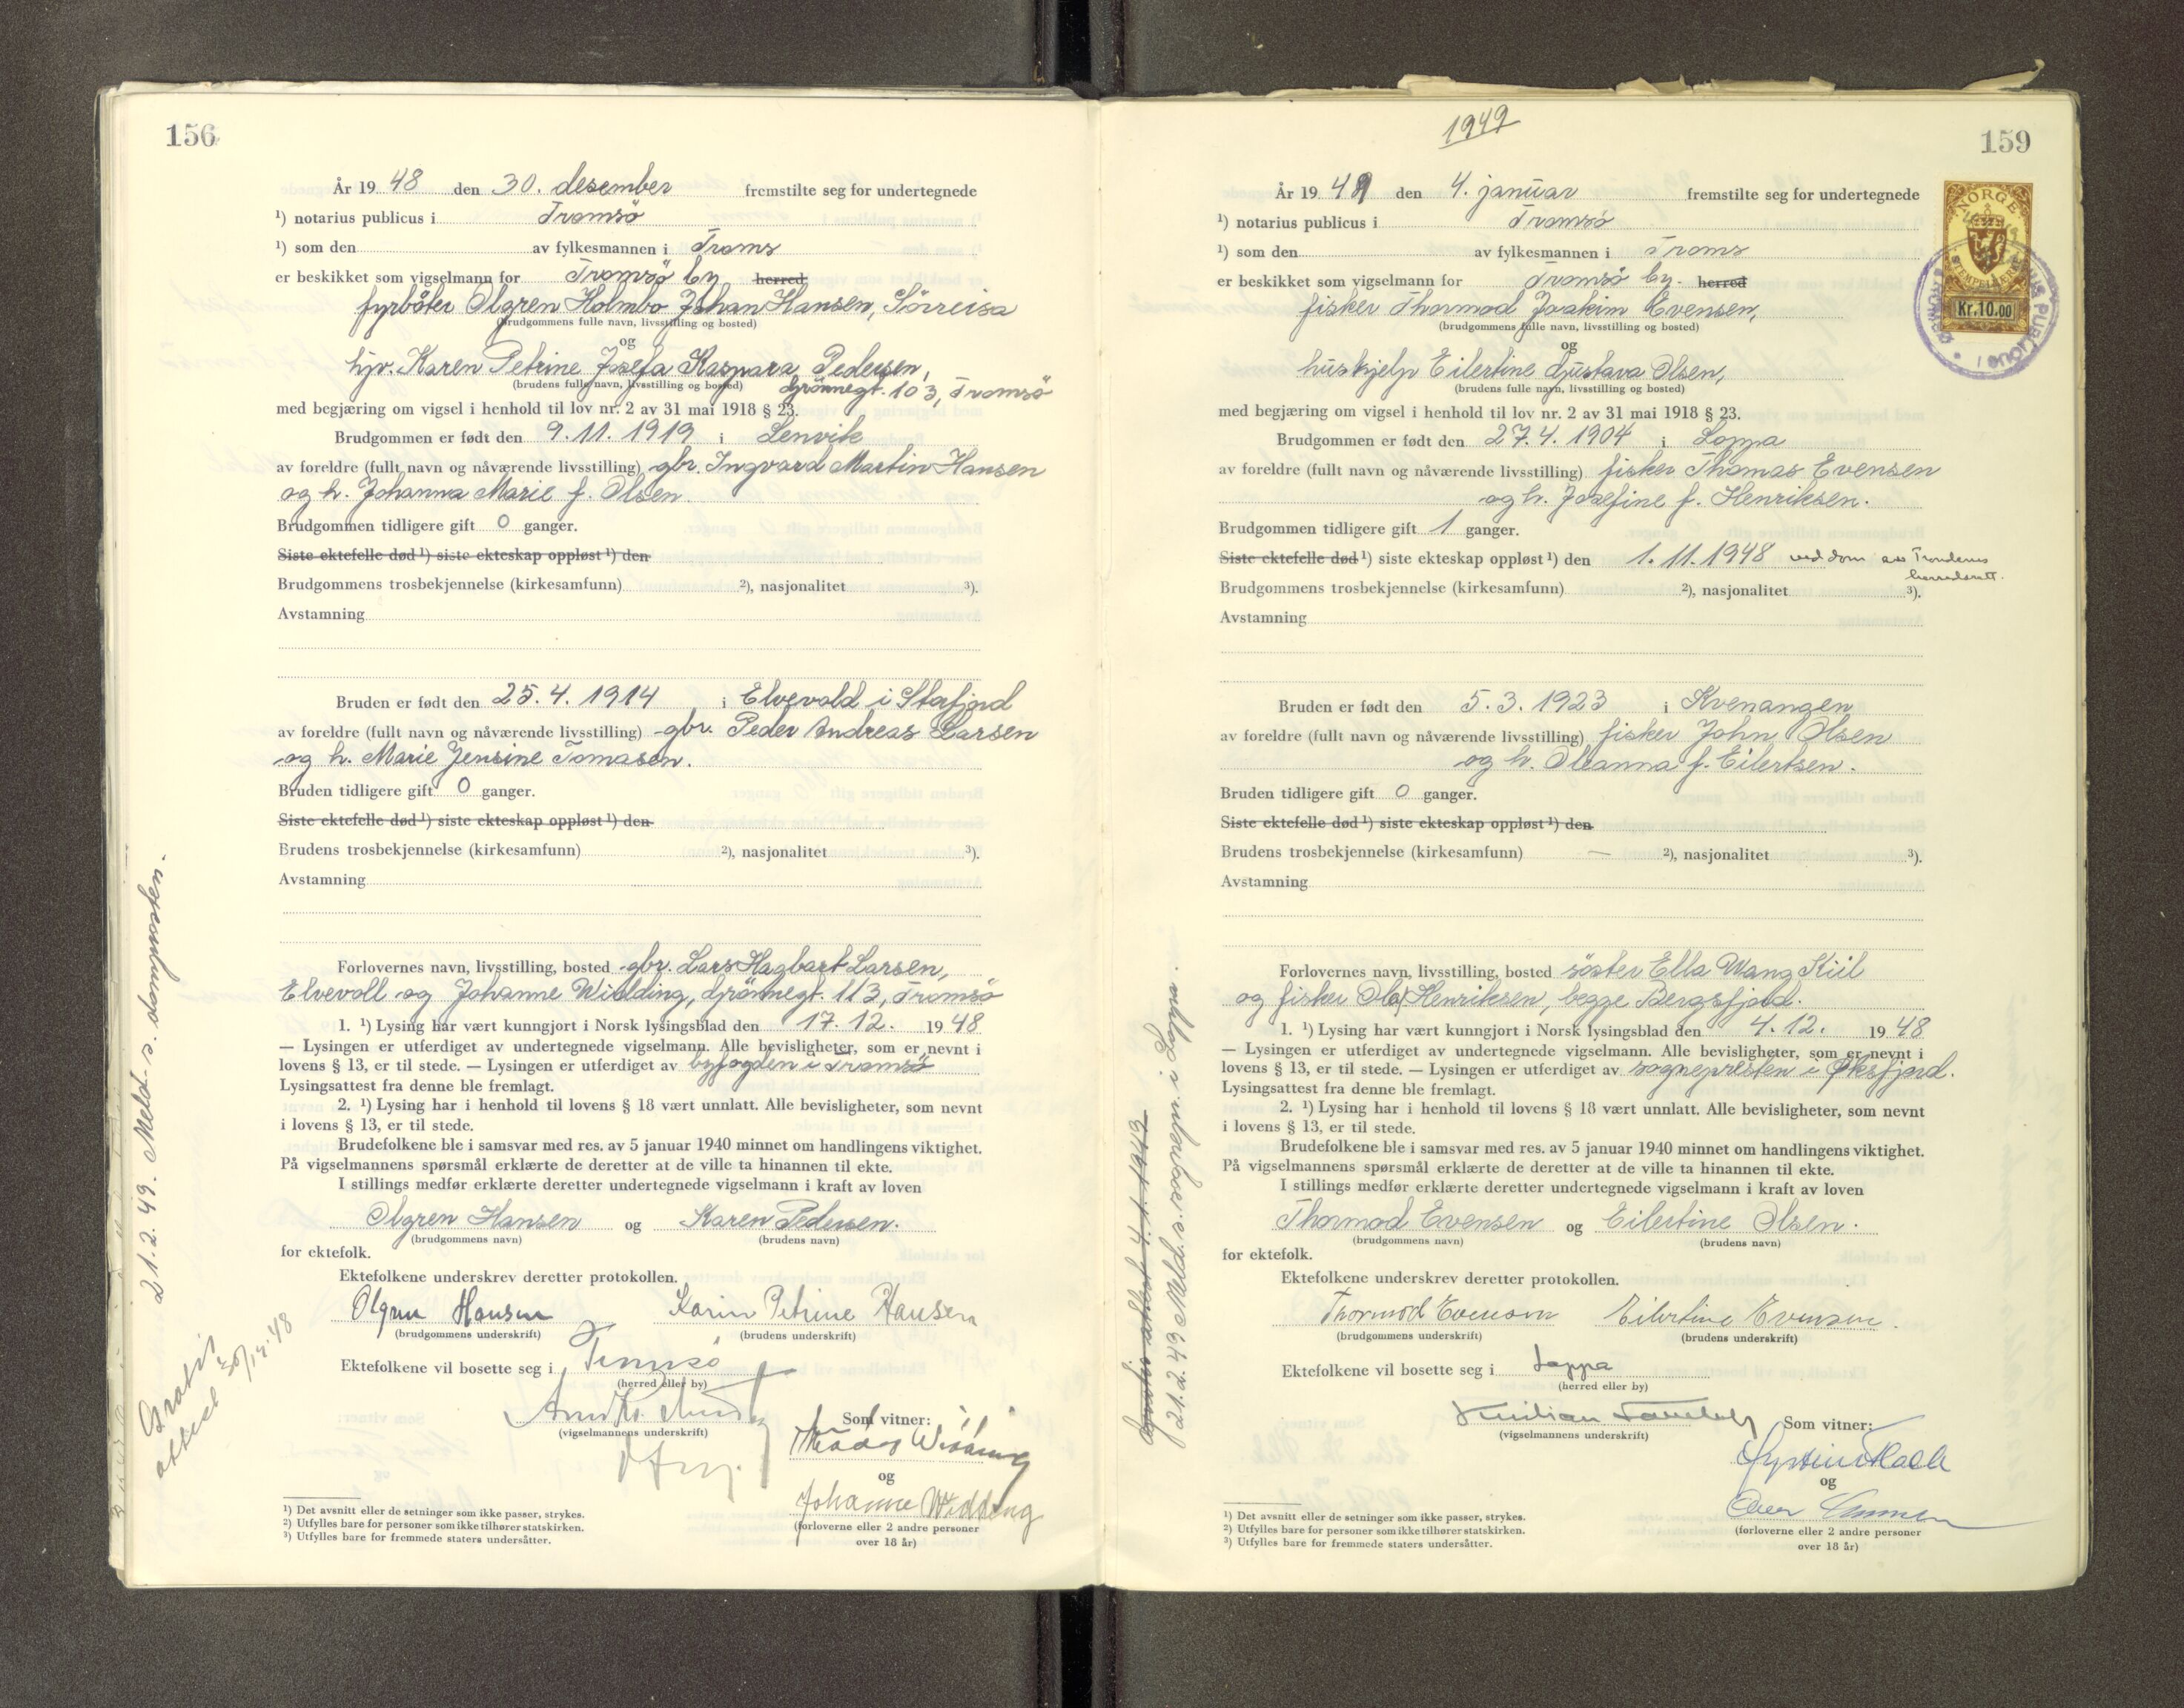 156
År 19 48 den 30. desember fremstilte seg for undertegnede
¹) notarius publicus i Tromsö
¹) som den av fylkesmannen i Troms
er beskikket som vigselmann for Tromsö by herred
fyrbøter Olgren Holmbo Johan Hansen, Sörreisa
(brudgommens fulle navn, livsstilling og bosted)
og
hjv. Karen Petrine Josefa Kaspara Pedersen,
(brudens fulle navn, livsstilling og bosted) Grönnegt. 103, Tromsö
med begjæring om vigsel i henhold til lov nr. 2 av 31 mai 1918 § 23.
Brudgommen er født den 9.11.1919 i Lenvik
av foreldre (fullt navn og nåværende livsstilling) gbr. Ingvard Martin Hansen
og h. Johanna Marie f. Olsen.
Brudgommen tidligere gift 0 ganger.
Siste ektefelle død ¹) siste ekteskap oppløst ¹) den
Brudgommens trosbekjennelse (kirkesamfunn) ²), nasjonalitet ³).
Avstamning
Bruden er født den 25.4.1914 i Elvevold i Storfjord
av foreldre (fullt navn og nåværende livsstilling) gbr. Peder Andreas Larsen
og h. Marie Jensine Tomasen.
Bruden tidligere gift 0 ganger.
Siste ektefelle død ¹) siste ekteskap oppløst ¹) den
Brudens trosbekjennelse (kirkesamfunn) ²), nasjonalitet ³).
Avstamning
Forlovernes navn, livsstilling, bosted gbr. Lars Hagbart Larsen,
Elvevoll og Johanne Widding, Grönnegt. 113, Tromsö
1. ¹) Lysing har vært kunngjort i Norsk lysingsblad den 17.12. 19 48
— Lysingen er utferdiget av undertegnede vigselmann. Alle bevisligheter, som er nevnt i
lovens § 13, er til stede. — Lysingen er utferdiget av byfogden i Tromsö
Lysingsattest fra denne ble fremlagt.
2. ¹) Lysing har i henhold til lovens § 18 vært unnlatt. Alle bevisligheter, som nevnt
i lovens § 13, er til stede.
Brudefolkene ble i samsvar med res. av 5 januar 1940 minnet om handlingens viktighet.
På vigselmannens spørsmål erklærte de deretter at de ville ta hinannen til ekte.
I stillings medfør erklærte deretter undertegnede vigselmann i kraft av loven
Olgren Hansen og Karen Pedersen.
(brudgommens navn) (brudens navn)
for ektefolk.
Ektefolkene underskrev deretter protokollen.
Olgren Hansen Karin Petrine Hansen
(brudgommens underskrift) (brudens underskrift)
Ektefolkene vil bosette seg i Tromsö
(herred eller by)
Som vitner:
(vigselmannens underskrift)
Widding
og
Johanne Widding
(forloverne eller 2 andre personer
over 18 år)
¹) Det avsnitt eller de setninger som ikke passer, strykes.
²) Utfylles bare for personer som ikke tilhører statskirken.
³) Utfylles bare for fremmede staters undersåtter.
21.2.49. Meld. s. sogneprosten.
Gratis
attest 30/12-48
1949
159
År 19 49 den 4. januar fremstilte seg for undertegnede
¹) notarius publicus i Tromsö
¹) som den av fylkesmannen i Troms
er beskikket som vigselmann for Tromsö by. herred
fisker Thormod Joakim Evensen,
(brudgommens fulle navn, livsstilling og bosted)
og
huskjelp Eilertine Gustava Olsen,
(brudens fulle navn, livsstilling og bosted)
med begjæring om vigsel i henhold til lov nr. 2 av 31 mai 1918 § 23.
Brudgommen er født den 27.4.1904 i Loppa
av foreldre (fullt navn og nåværende livsstilling) fisker Thomas Evensen
og h. Josefine f. Henriksen.
Brudgommen tidligere gift 1 ganger.
Siste ektefelle død ¹) siste ekteskap oppløst ¹) den 1.11.1948 ved dom av Trondenes
herredsrett.
Brudgommens trosbekjennelse (kirkesamfunn) ²), nasjonalitet ³).
Avstamning
Bruden er født den 5.3.1923 i Kvenangen
av foreldre (fullt navn og nåværende livsstilling) fisker John Olsen
og h. Oleanna f. Eilertsen.
Bruden tidligere gift 0 ganger.
Siste ektefelle død ¹) siste ekteskap oppløst ¹) den
Brudens trosbekjennelse (kirkesamfunn) — ²), nasjonalitet ³).
Avstamning
Forlovernes navn, livsstilling, bosted söster Ella Wang Kiil
og fisker Olaf Henriksen, begge Bergsfjord.
1. ¹) Lysing har vært kunngjort i Norsk lysingsblad den 4.12. 19 48
— Lysingen er utferdiget av undertegnede vigselmann. Alle bevisligheter, som er nevnt i
lovens § 13, er til stede. — Lysingen er utferdiget av sognepresten i Øksfjord.
Lysingsattest fra denne ble fremlagt.
2. ¹) Lysing har i henhold til lovens § 18 vært unnlatt. Alle bevisligheter, som nevnt
i lovens § 13, er til stede.
Brudefolkene ble i samsvar med res. av 5 januar 1940 minnet om handlingens viktighet.
På vigselmannens spørsmål erklærte de deretter at de ville ta hinannen til ekte.
I stillings medfør erklærte deretter undertegnede vigselmann i kraft av loven
Thormod Evensen og Eilertine Olsen.
(brudgommens navn) (brudens navn)
for ektefolk.
Ektefolkene underskrev deretter protokollen.
Thormod Evensen Eilertine Evensen.
(brudgommens underskrift) (brudens underskrift)
Ektefolkene vil bosette seg i Loppa
(herred eller by)
Som vitner:
(vigselmannens underskrift)
og
(forloverne eller 2 andre personer
over 18 år)
¹) Det avsnitt eller de setninger som ikke passer, strykes.
²) Utfylles bare for personer som ikke tilhører statskirken.
³) Utfylles bare for fremmede staters undersåtter.
Gratis attest 4.1.1949
21.2.49 Meld. s. sognepresten i Loppa.
NORGE
STEMPELMERKE
Kr.10.00